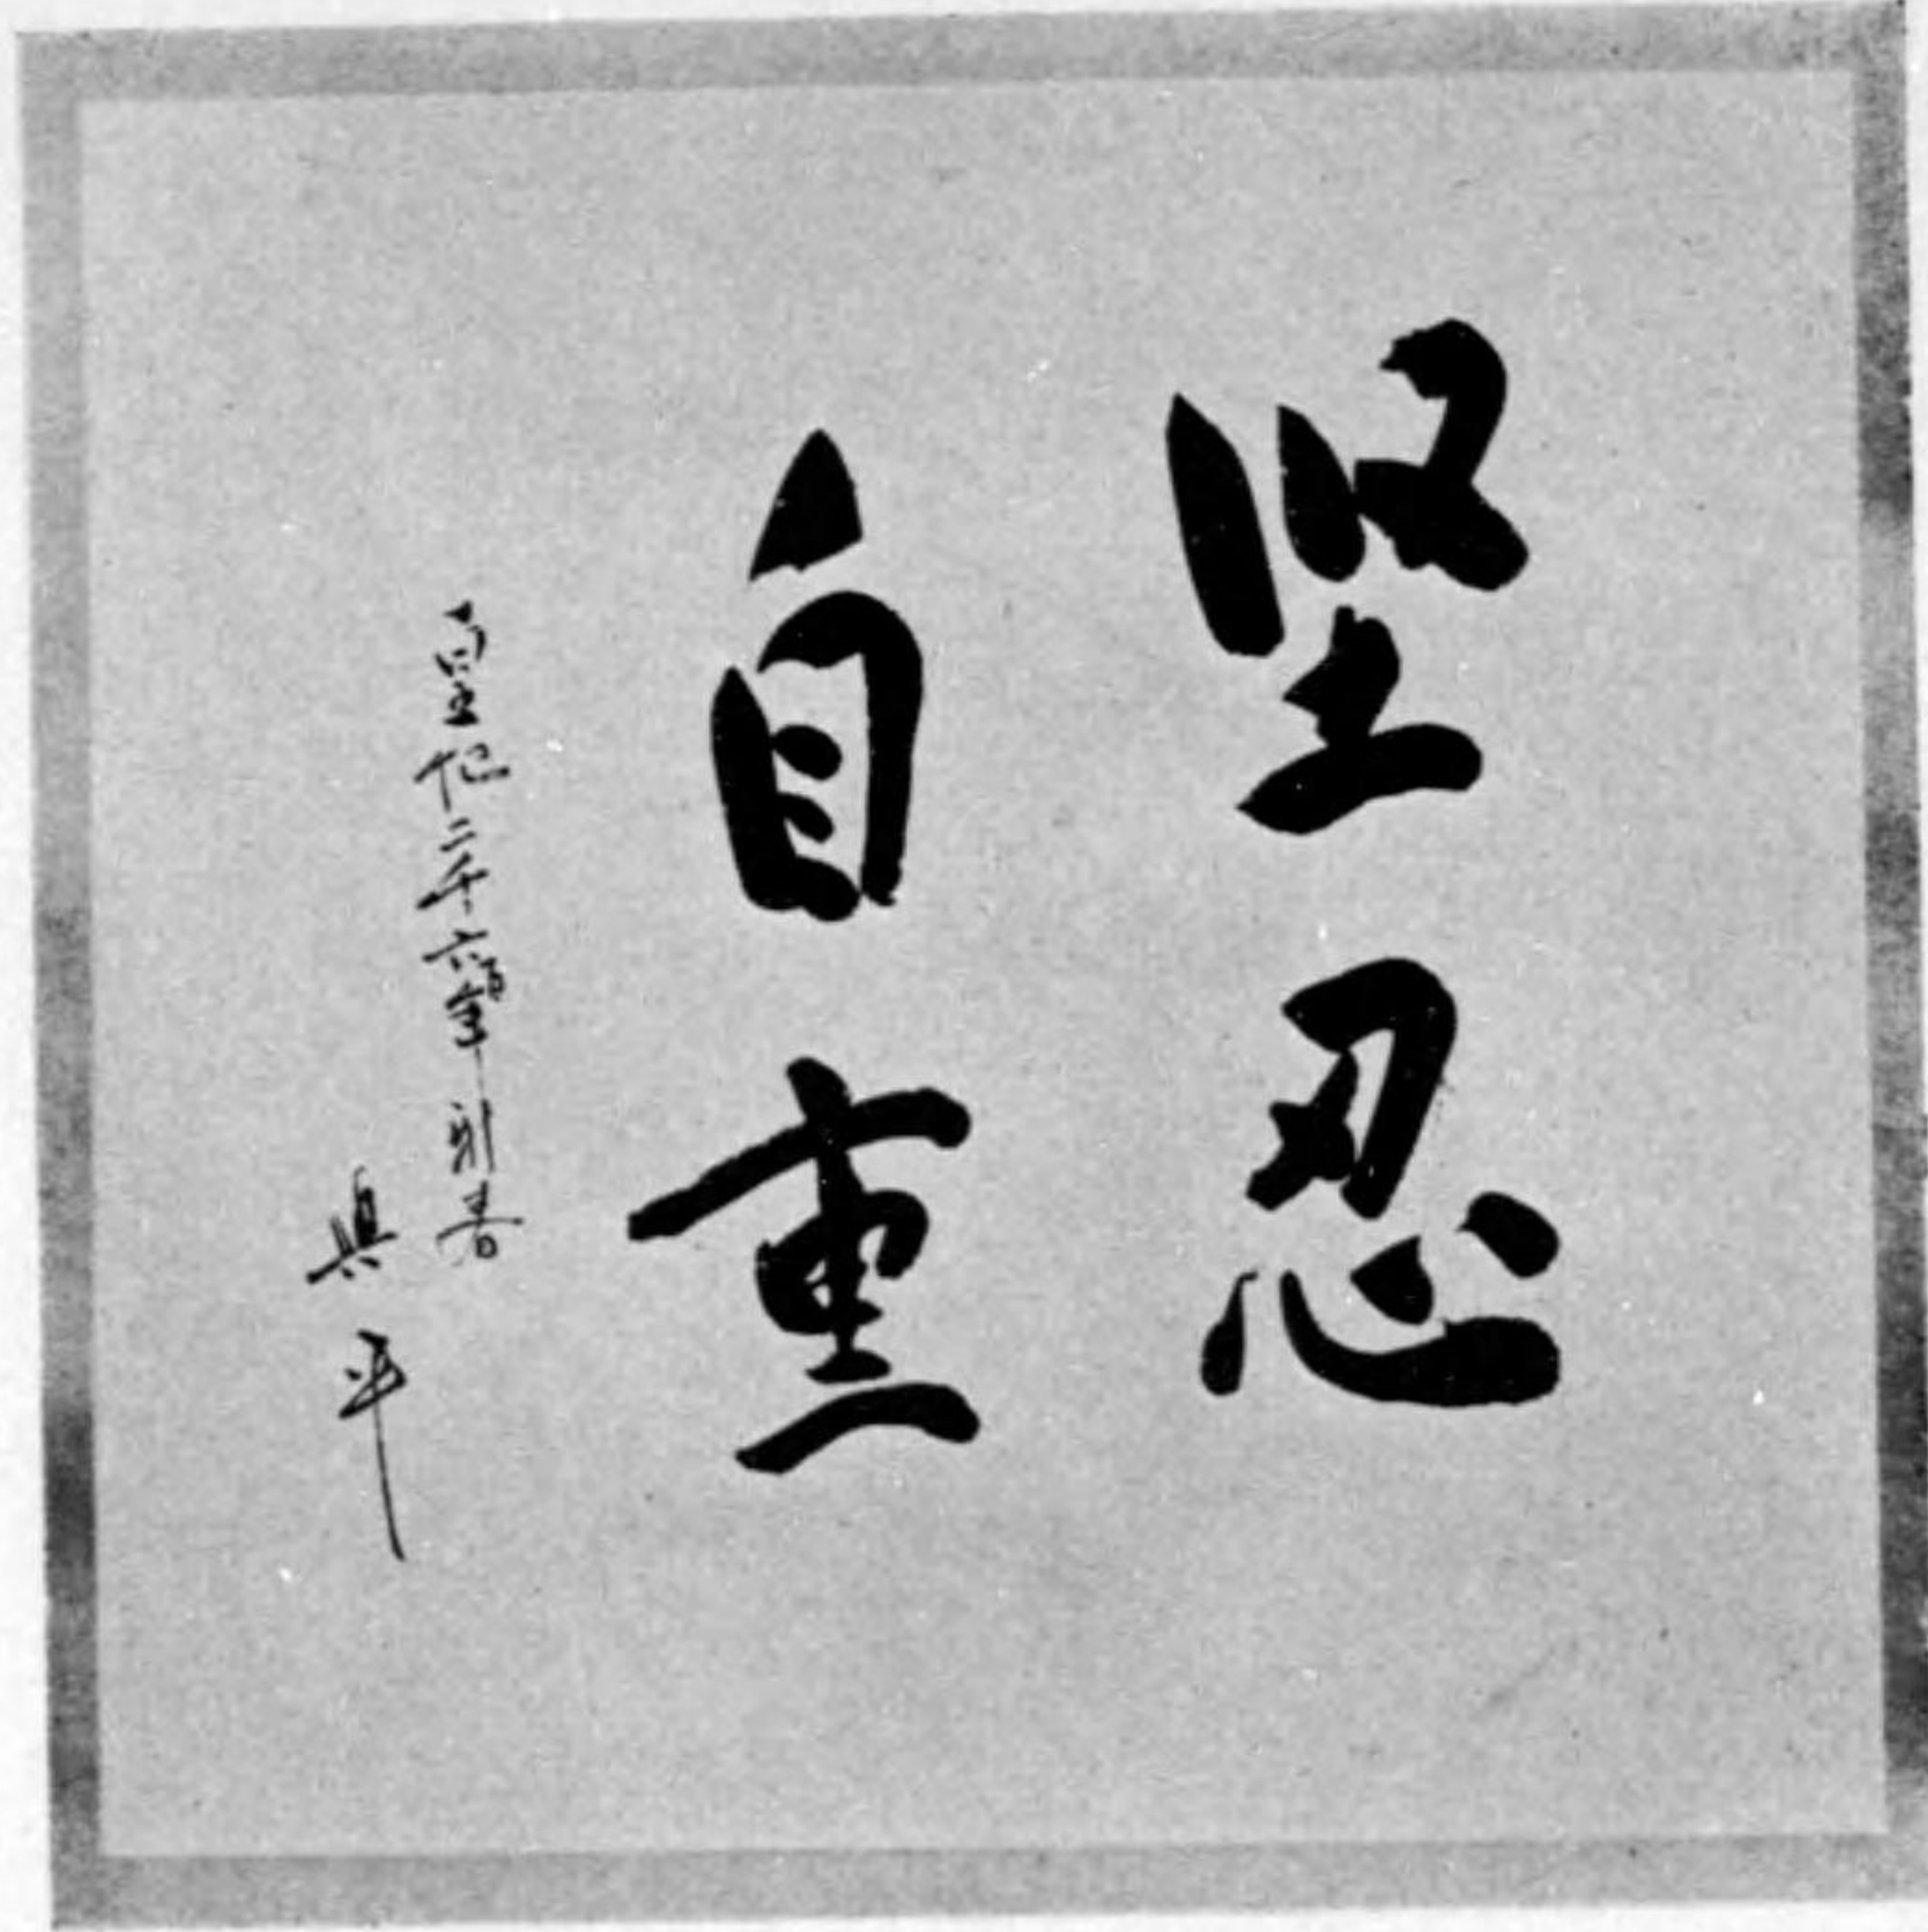 堅忍
自重
皇紀二千六百年新春
與平